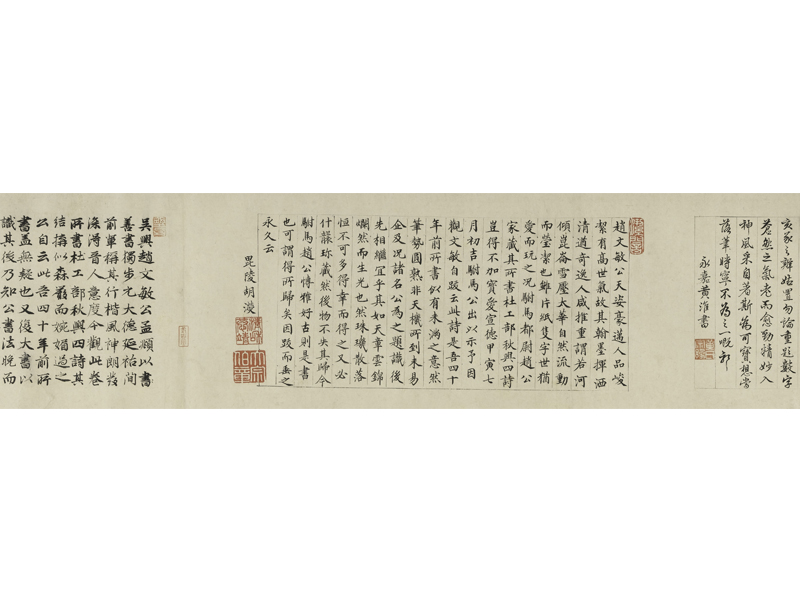 亥豕之辨姑置勿論重題數字
蒼然之氣老而愈勁精妙入
神風采自著斯為可寶想當
落筆時寧不為之一慨邪
永嘉黃淮書
趙文敏公天姿豪邁人品峻
潔有高世氣故其翰墨揮洒
清遒奇逸人咸推重謂若河
傾崑崙雪壓太華自然流動
而瑩潔也雖片紙隻字世猶
愛而玩之况駙馬都尉趙公
家藏其所書杜工部秋興四詩
豈得不加寶愛宣德甲寅七
月初吉駙馬公出以示予因
觀文敏自跋云此詩是吾四十
年前所書似有未滿之意然
筆勢圓熟非天機所到未易
企及况諸名公為之題識後
先相繼宜乎其如天章雲錦
爛然而生光也然珠璣散落
恒不可多得幸而得之又必
什襲珍藏然後物不失其歸今
駙馬趙公博雅好古則是書
也可謂得所歸矣因跋而垂之
永久云
毘陵胡濙
吳興趙文敏公孟頫以書
善書獨步元大德延祐間
前輩稱其行楷風神朗發
深得晉人意度今觀此卷
所書杜工部秋興四詩其
結搆似森嚴而婉媚過之
公自云此吾四十年前所
書蓋無疑也又復大書以
識其後乃知公書法晚而